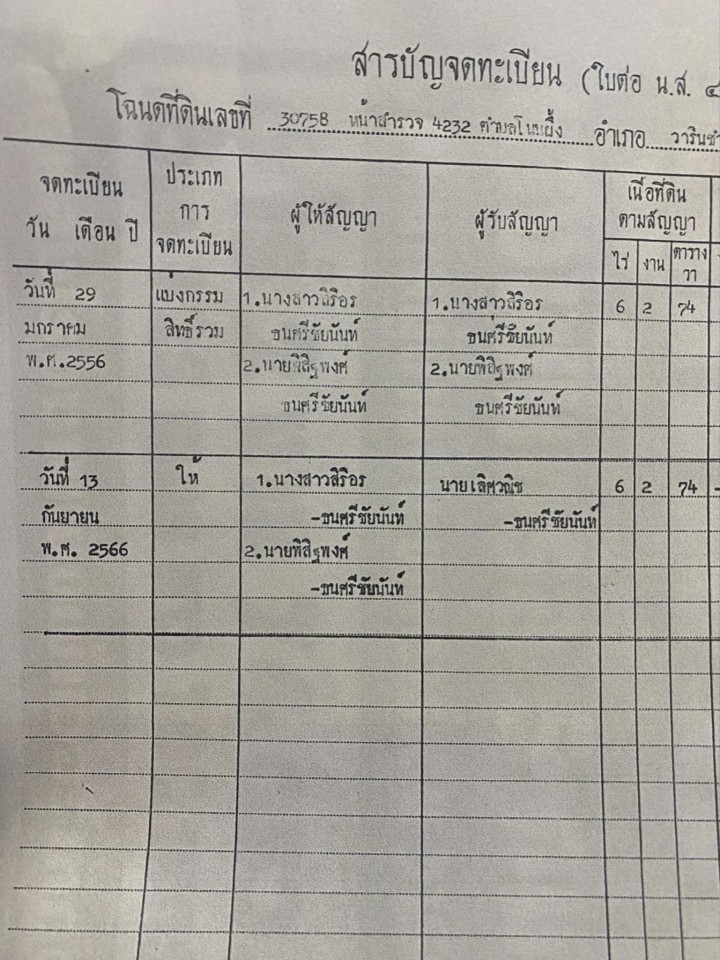 สารบัญจดทะเบียน (ใบต่อ น.ส. ๔
โฉนดที่ดินเลขที่ 30758 หน้าสำรวจ 4232 ตำบลโนนผึ้ง อำเภอ วารินชำ
จดทะเบียน
วัน เดือน ปี
ประเภท
การ
จดทะเบียน
ผู้ให้สัญญา
ผู้รับสัญญา
เนื้อที่ดิน
ตามสัญญา
ไร่ งาน ตาราง
วา
วันที่ 29 แบ่งกรรม 1.นางสาวสิริอร 1.นางสาวสิริอร 6 2 74
มกราคม สิทธิ์รวม ธนศรีชัยนันท์ ธนศรีชัยนันท์
พ.ศ.2556 2.นายพิสิฐพงศ์ 2.นายพิสิฐพงศ์
ธนศรีชัยนันท์ ธนศรีชัยนันท์
วันที่ 13 ให้ 1.นางสาวสิริอร นายเลิศวณิช 6 2 74 -
กันยายน -ธนศรีชัยนันท์ -ธนศรีชัยนันท์
พ.ศ. 2566 2.นายพิสิฐพงศ์
-ธนศรีชัยนันท์